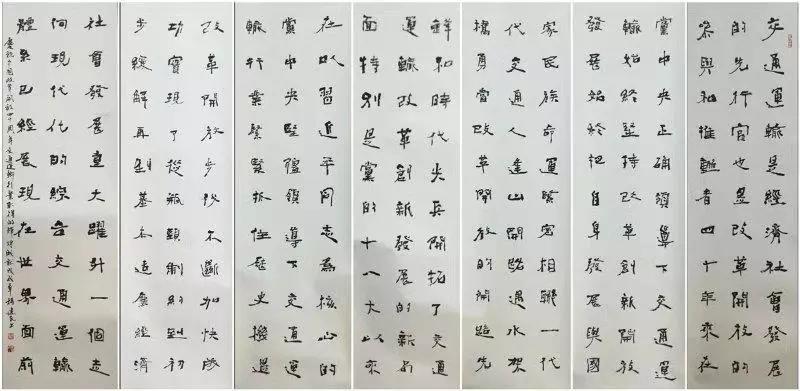 交通運輸是經濟社會發展
的先行官也是改革開放的
參與和推動者四十年來在
黨中央正確領導下交通運
輸始終堅持改革創新開放
發展始終把自身發展與國
家民族命運緊密相聯一代
代交通人逢山開路遇水架
橋勇當改革開放的開路先
鋒和時代尖兵開拓了交通
運輸改革創新發展的新局
面特別是黨的十八大以來
在以習近平同志為核心的
黨中央堅強領導下交通運
輸行業緊緊抓住歷史機遇
改革開放步伐不斷加快
功實現了從瓶頸制約到初
步緩解再到基本適應經濟
社會發展重大躍升一個走
向現代化的綜合交通運輸
體系已經展現在世界面前
慶祝中國改革開放四十周年交通運輸行業取得的輝煌成就戊戌年